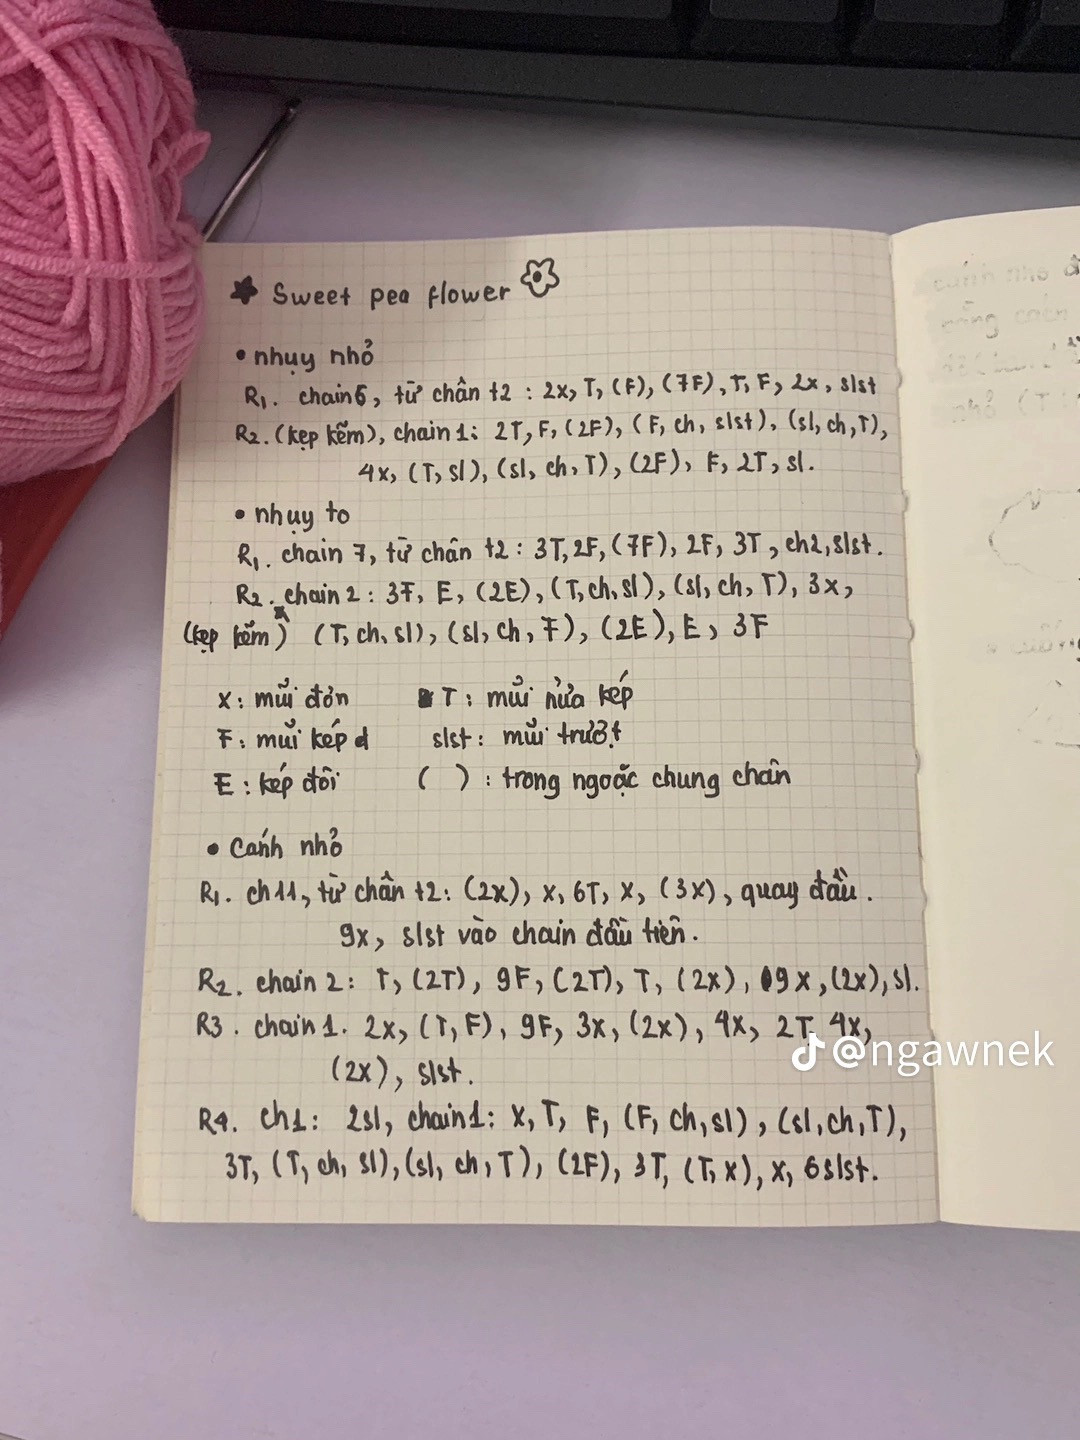 ★ Sweet pea flower
• nhụy nhỏ
R1. chain6, từ chân t2 : 2x, T, (F), (7F), T, F, 2x, slst
R2. (kẹp kẽm), chain 1: 2T, F, (2F), (F, ch, slst), (sl, ch, T),
4x, (T, sl), (sl, ch, T), (2F), F, 2T, sl.
• nhụy to
R1. chain 7, từ chân t2 : 3T, 2F, (7F), 2F, 3T, ch2, slst.
R2. chain 2 : 3F, E, (2E), (T, ch, sl), (sl, ch, T), 3x,
(kẹp kẽm) (T, ch, sl), (sl, ch, F), (2E), E, 3F
x : mũi đơn T : mũi nửa kép
F : mũi kép đ slst : mũi trượt
E : kép đôi ( ) : trong ngoặc chung chân
• Cánh nhỏ
R1. ch11, từ chân t2: (2x), x, 6T, x, (3x), quay đầu.
9x, slst vào chain đầu tiên.
R2. chain 2: T, (2T), 9F, (2T), T, (2x), 9x, (2x), sl.
R3. chain 1. 2x, (T, F), 9F, 3x, (2x), 4x, 2T, 4x,
(2x), slst.
R4. ch1: 2sl, chain1: x, T, F, (F, ch, sl), (sl, ch, T),
3T, (T, ch, sl), (sl, ch, T), (2F), 3T, (T, x), x, 6slst.
@ngawnek